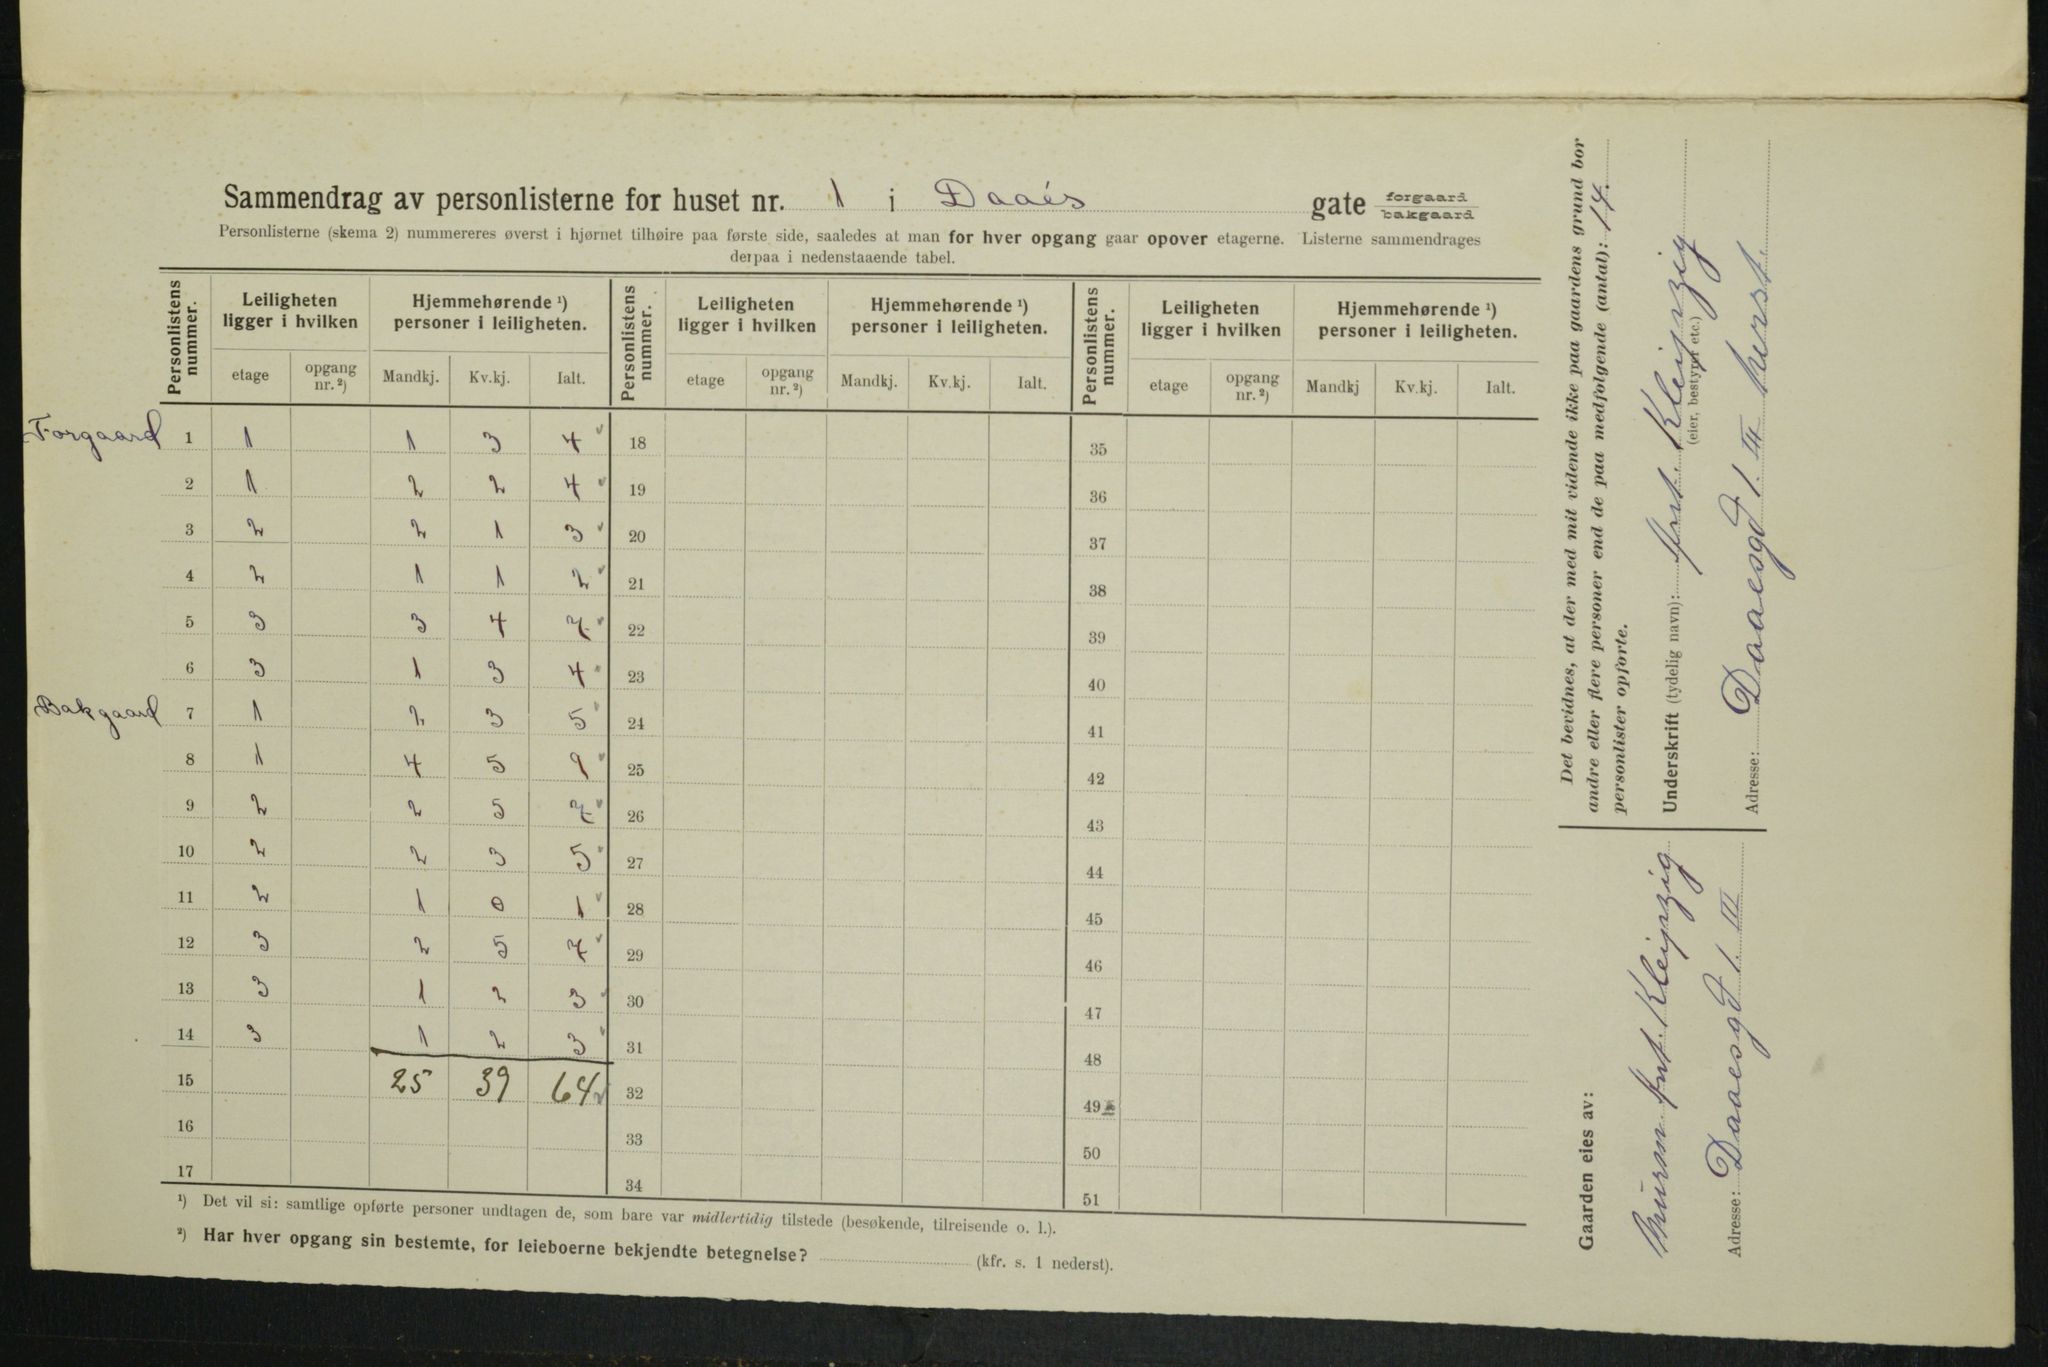 Sammendrag av personlisterne for huset nr. 1 i Daaés gate forgaard bakgaard
Personlisterne (skema 2) nummereres øverst i hjørnet tilhøire paa første side, saaledes at man for hver opgang gaar opover etagerne. Listerne sammendrages
derpaa i nedenstaaende tabel.
Personlistens nummer. Leiligheten ligger i hvilken Hjemmehørende ¹) personer i leiligheten. Personlistens nummer. Leiligheten ligger i hvilken Hjemmehørende ¹) personer i leiligheten. Personlistens nummer. Leiligheten ligger i hvilken Hjemmehørende ¹) personer i leiligheten.
etage opgang nr. ²) Mandkj. Kv.kj. Ialt. etage opgang nr. ²) Mandkj. Kv.kj. Ialt. etage opgang nr. ²) Mandkj Kv.kj. Ialt.
Forgaard 1 1 1 3 4 18 35
2 1 2 2 4 19 36
3 2 2 1 3 20 37
4 2 1 1 2 21 38
5 3 3 4 7 22 39
6 3 1 3 4 23 40
Bakgaard 7 1 2 3 5 24 41
8 1 4 5 9 25 42
9 2 2 5 7 26 43
10 2 2 3 5 27 44
11 2 1 0 1 28 45
12 3 2 5 7 29 46
13 3 1 2 3 30 47
14 3 1 2 3 31 48
15 25 39 64 32 49
16 33 50
17 34 51
¹) Det vil si: samtlige opførte personer undtagen de, som bare var midlertidig tilstede (besøkende, tilreisende o. l.).
²) Har hver opgang sin bestemte, for leieboerne bekjendte betegnelse? (kfr. s. 1 nederst).
Det bevidnes, at der med mit vidende ikke paa gaardens grund bor
andre eller flere personer end de paa medfølgende (antal): 14.
personlister opførte.
Underskrift (tydelig navn): Ant. Kleipzig
(eier, bestyrer etc.)
Adresse: Daaesgd 1. III
Gaarden eies av:
Ant. Kleipzig
Adresse: Daaesgd 1. III